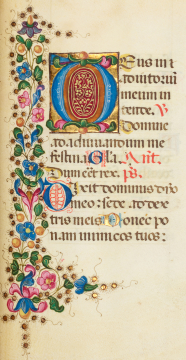 Deus in a
diutorium
meum in
tende. R
Domine
ad adiuuandum me
festina. Gloria. Ant.
Dum eet rex. ps.
Dixit dominus dno
meo: sede a dex
tris meis Donec po
nam inimicos tuos: